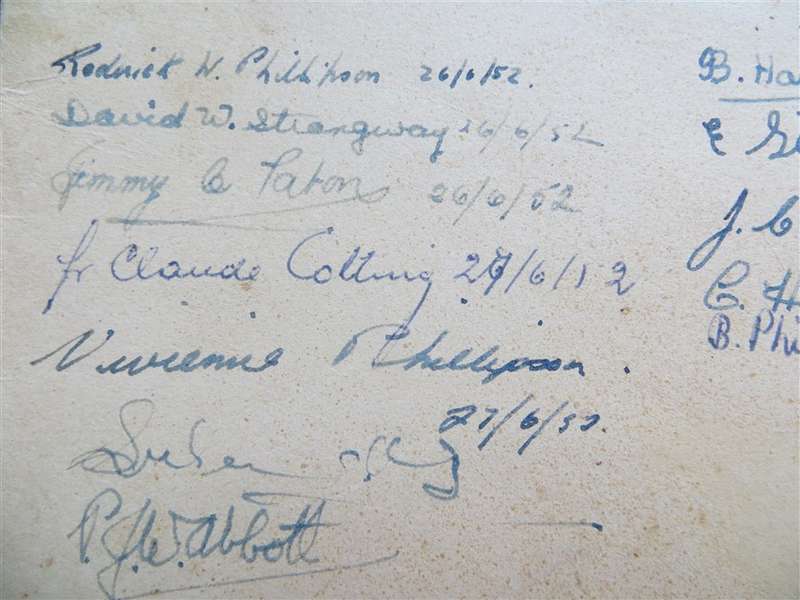 Rodrick W. Phillipson 26/6/52.
David W. Strangway 26/6/52
Jimmy C Paton 26/6/52
fr Claude Colting 27/6/52
Vivienne Phillipson.
27/6/52.
P.J.W. Abbott
B. Ha
E
J. C
C. H
B. Phi